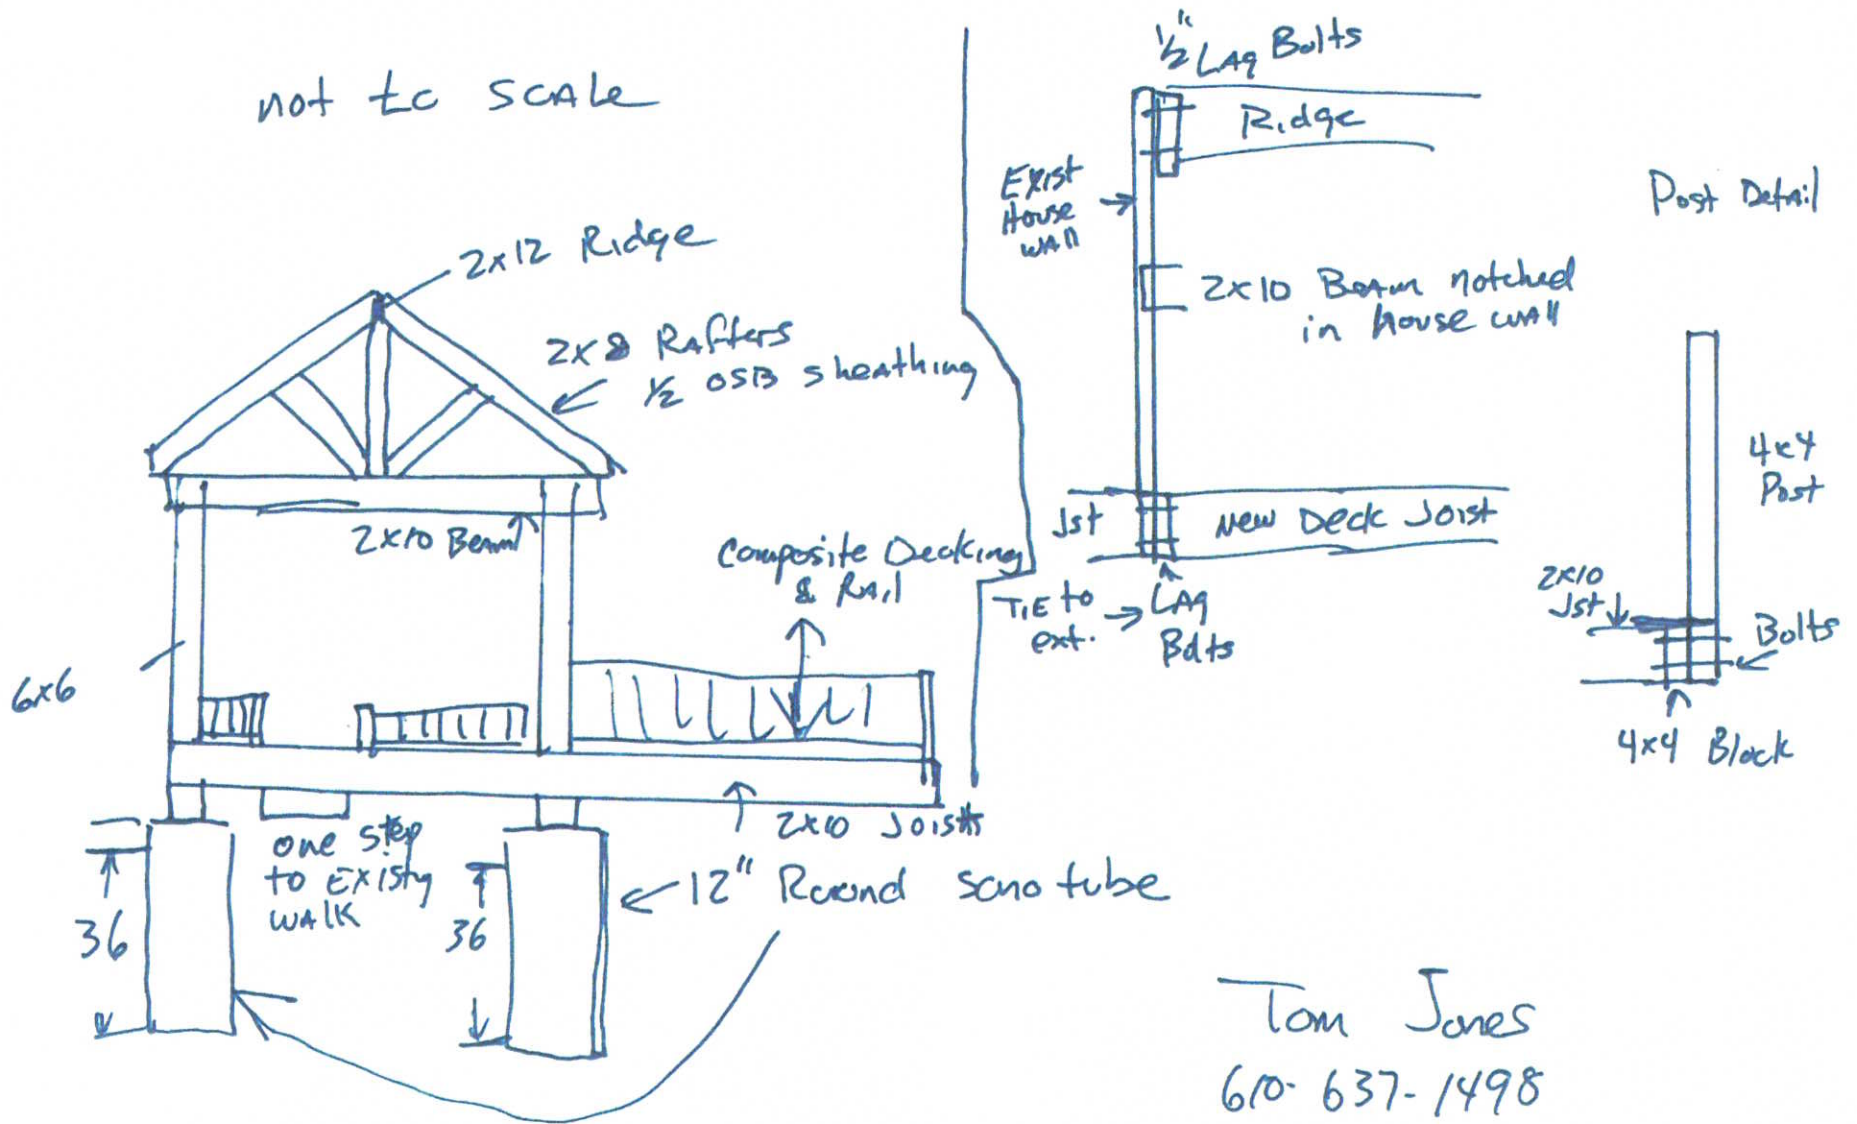 not to SCALE
2x12 Ridge
2x8 Rafters
1/2 OSB sheathing
2x10 Beam
Composite Decking
& Rail
6x6
2x10 Joists
one step
to Existg
WALK
36
36
12" Round sono tube
1/2" LAg Bolts
Ridge
Exist
House
WAll
2x10 Beam notched
in house wall
Jst
New Deck Joist
TIE to
ext.
LAg
Bolts
Post Detail
4x4
Post
2x10
Jst
Bolts
4x4 Block
Tom Jones
610-637-1498